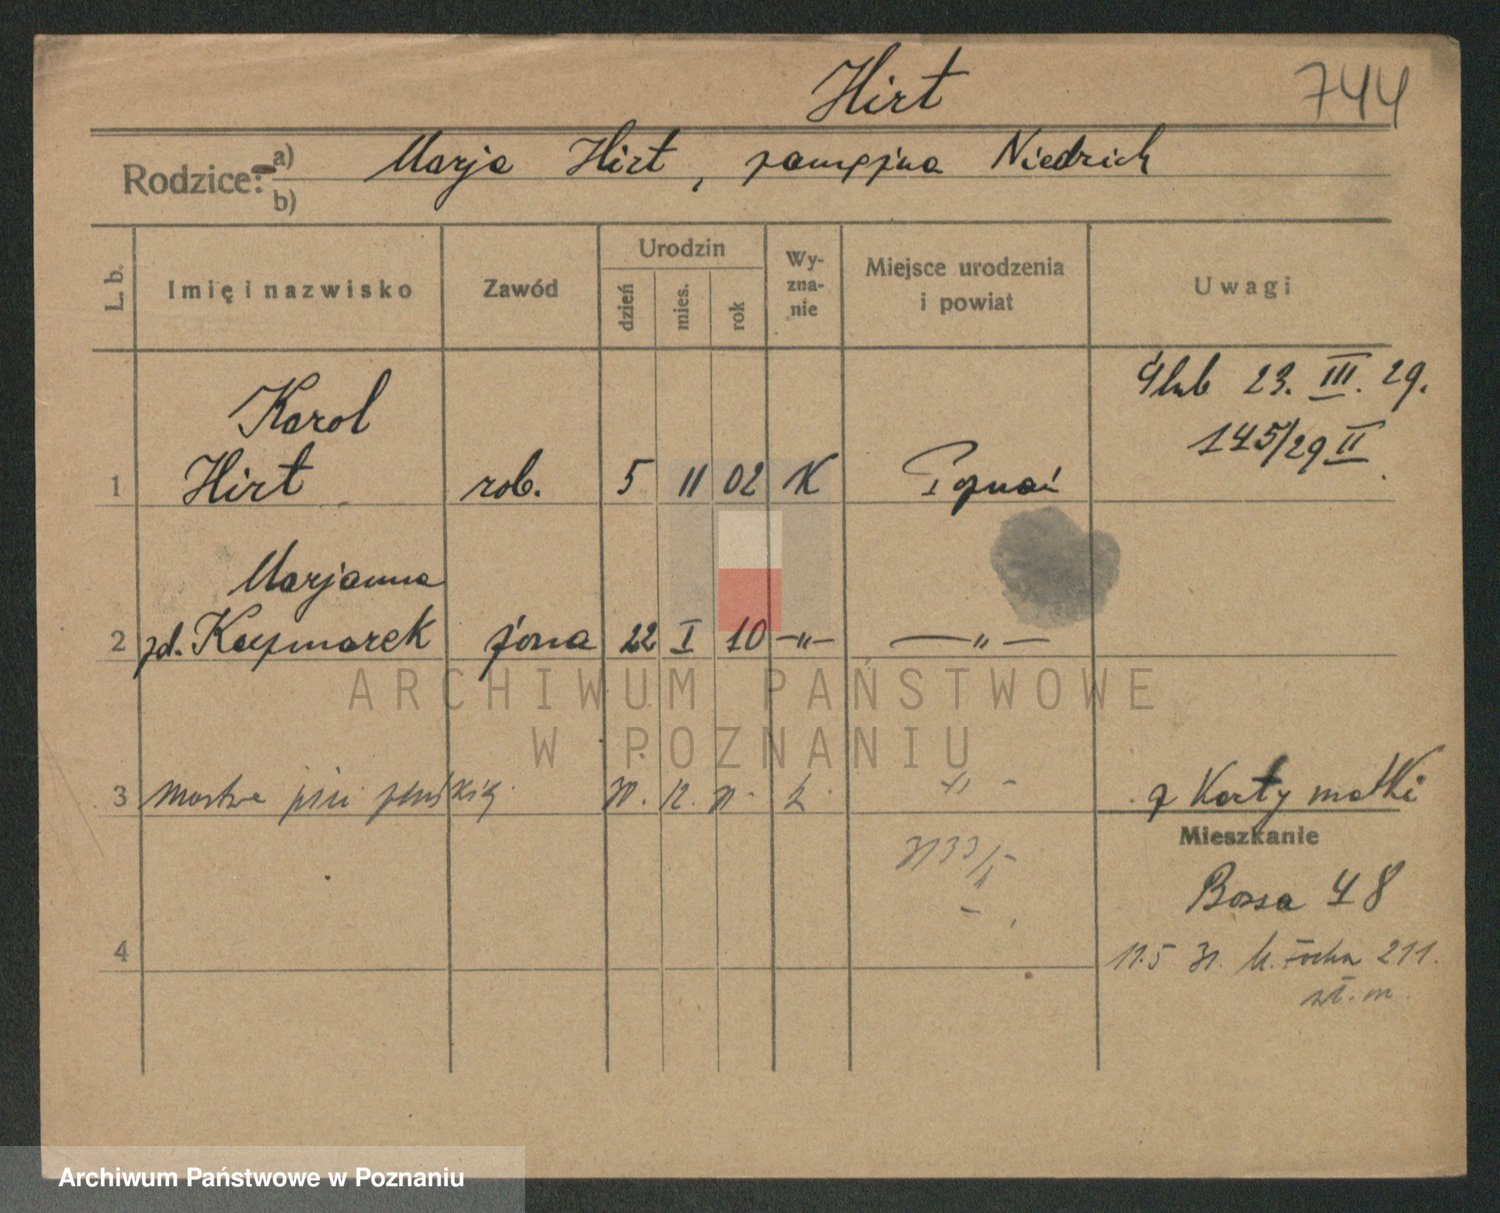 Hirt
744
Rodzice: a) Marja Hirt, zamężna Niedrich
b)
L. b.
Imię i nazwisko
Zawód
Urodzin
dzień
mies.
rok
Wy-
zna-
nie
Miejsce urodzenia
i powiat
Uwagi
Ślub 23. III. 29.
145/29 II
Karol
1 Hirt rob. 5 11 02 K Poznań
Marjanna
2 zd. Kaczmarek żona 22 I 10 -"- -"-
3 martwe płci żeńskiej
z Karty matki
Mieszkanie
Bossa 48
4
11.5 31. M. Focha 211.
ARCHIWUM PAŃSTWOWE
W POZNANIU
Archiwum Państwowe w Poznaniu